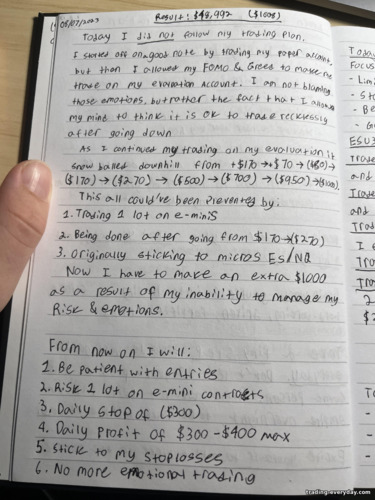 08/07/2023 Result: $49,992 ($1008)
Today I did not follow my trading plan.
I started off on a good note by trading my paper account,
but then I allowed my FOMO & Greed to make me
trade on my evaluation account. I am not blaming
those emotions, but rather the fact that I allowed
my mind to think it is OK to trade recklessly
after going down
As I continued my trading on my evaluation it
snow balled downhill from +$170 → +$70 → ($80) →
($170) → ($270) → ($500) → ($700) → ($950) → ($1008).
This all could've been prevented by:
1. Trading 1 lot on e-minis
2. Being done after going from $170 → ($270)
3. Originally sticking to micros ES/NQ
Now I have to make an extra $1000
as a result of my inability to manage my
Risk & emotions.
From now on I will:
1. Be patient with entries
2. Risk 1 lot on e-mini contracts
3. Daily stop of ($300)
4. Daily Profit of $300-$400 max
5. Stick to my stoplosses
6. No more emotional trading
trading-everyday.com